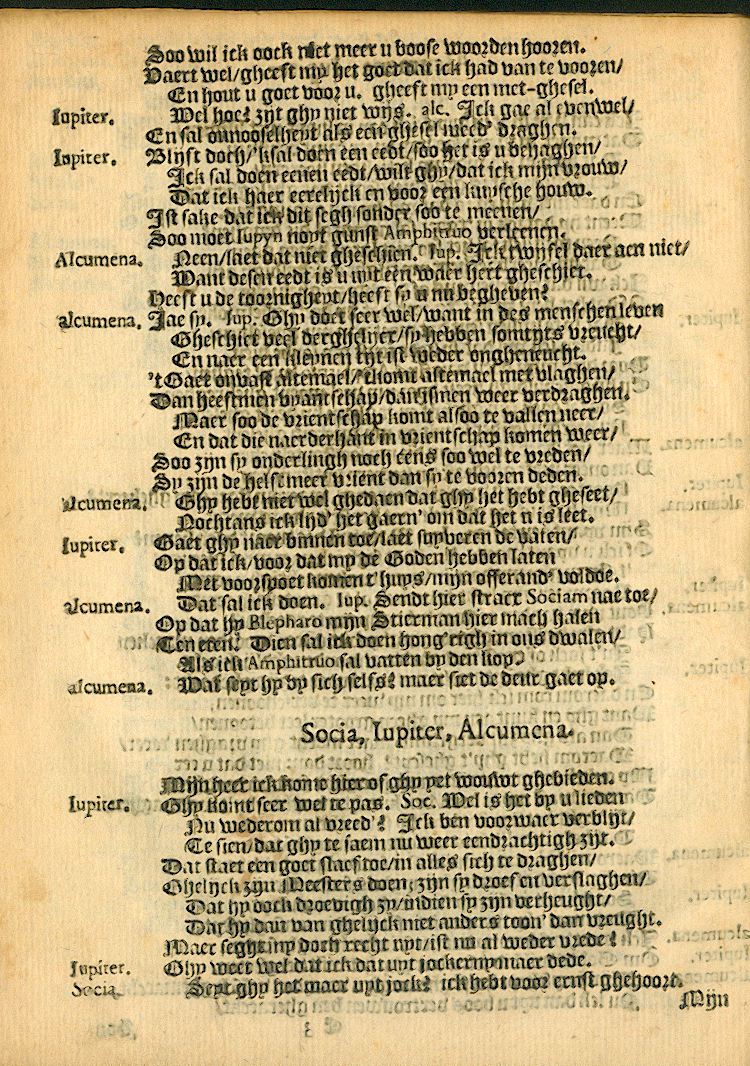 Soo wil ick oock niet meer u boose woorden hooren.
Vaert wel/gheeft my het goet dat ick had van te vooren/
En hout u goet voor u. gheeft my een met-ghesel.
Iupiter. Wel hoe? zyt ghy niet wijs. alc. Ick gae al evenwel/
En sal onnooselheyt als een ghesel meed' draghen.
Iupiter. Blijft doch/'ksal doen een eedt/soo het is u behaghen/
Ick sal doen eenen eedt/wilt ghy/dat ick mijn vrouw/
Dat ick haer eerelijck en voor een kuysche houw.
Ist sake dat ick dit segh sonder soo te meenen/
Soo moet Iupyn noyt gunst Amphitruo verleenen.
Alcumena. Neen/laet dat niet gheschien. Iup. Ick twijfel daer aen niet/
Want desen eedt is u uyt een waer hert gheschiet.
Heeft u de toornigheyt/heeft sy u nu begheven?
alcumena. Jae sy. Iup. Ghy doet seer wel/want in des menschen leven
Gheschiet veel derghelijcx/sy hebben somtyts vreucht/
En naer een kleynen tyt ist weder ongheneucht.
't Gaet onvast altemael/'tkomt altemael met vlaghen/
Dan heeftmen vyantschap/dan ismen weer verdraghen.
Maer soo de vrientschap komt alsoo te vallen neer/
En dat die naerderhant in vrientschap komen weer/
Soo zijn sy onderlingh noch eens soo wel te vreden/
Sy zijn de helft meer vrient dan sy te vooren deden.
alcumena. Ghy hebt niet wel ghedaen dat ghy het hebt gheseet/
Nochtans ick lijd' het gaern' om dat het u is leet.
Iupiter. Gaet ghy naer binnen toe/laet suyveren de vaten/
Op dat ick/voor dat my de Goden hebben laten
Met voorspoet komen t'huys/mijn offerand' voldoe.
alcumena. Dat sal ick doen. Iup. Sendt hier stracx Sociam nae toe/
Op dat hy Blepharo mijn Stierman hier mach halen
Ten eten: Dien sal ick doen hong'righ in ons dwalen/
Als ick Amphitruo sal vatten by den kop.
alcumena. Wat seyt hy by sich selfs? maer siet de deur gaet op.
Socia, Iupiter, Alcumena.
Mijn heer ick kome hier of ghy yet wouwt ghebieden.
Iupiter. Ghy komt seer wel te pas. Soc. Wel is het by u lieden
Nu wederom al vreed'? Ick ben voorwaer verblijt/
Te sien/dat ghy te saem nu weer eendrachtigh zijt.
Dat staet een goet slaef toe/in alles sich te draghen/
Ghelijck zijn Meesters doen; zijn sy droef en verslaghen/
Dat hy oock droevigh zy/indien sy zijn verheught/
Dat hy dan van ghelijck niet anders toon' dan vreught.
Maer seght my doch recht uyt/ist nu al weder vrede?
Iupiter. Ghy weet wel dat ick dat uyt jockerny maer dede.
Socia. Seyt ghy het maer uyt jock? ick hebt voor ernst ghehoort.
Mijn